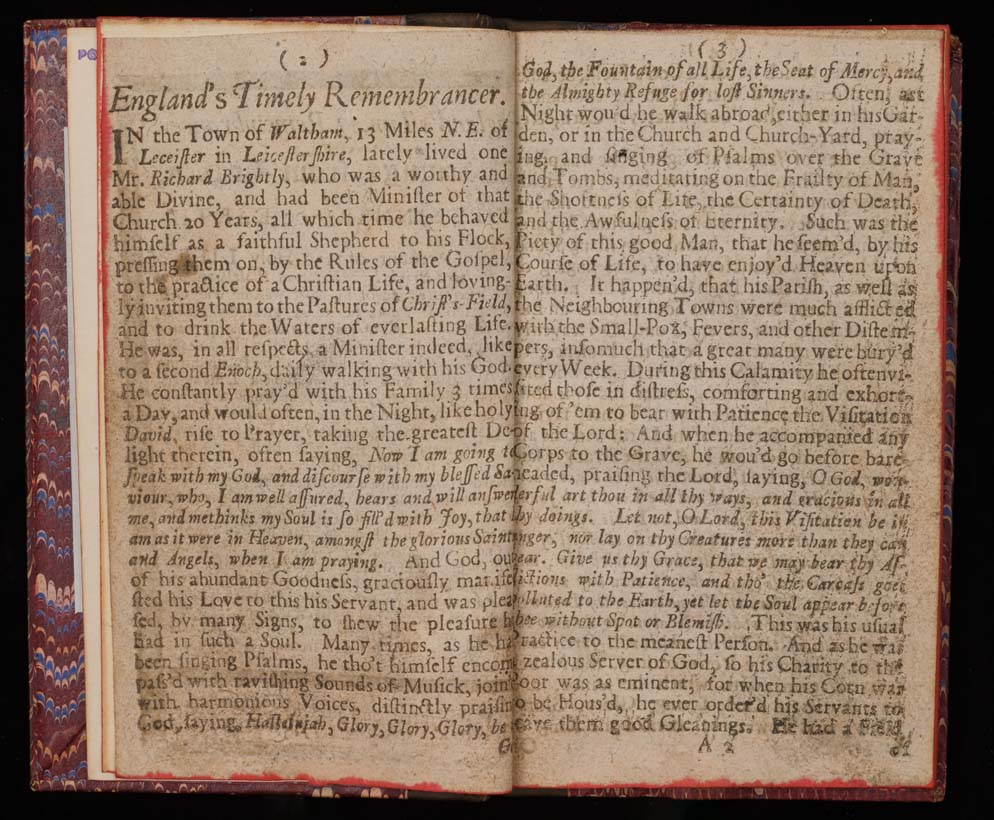 ( 2 )
England's Timely Remembrancer.
IN the Town of Waltham, 13 Miles N. E. of
Leceiſter in Leiceſterſhire, lately lived one
Mr. Richard Brightly, who was a worthy and
able Divine, and had been Miniſter of that
Church 20 Years, all which time he behaved
himſelf as a faithful Shepherd to his Flock,
preſſing them on, by the Rules of the Goſpel,
to the practice of a Chriſtian Life, and loving-
ly inviting them to the Paſtures of Chriſt's-Field,
and to drink the Waters of everlaſting Life.
He was, in all reſpects, a Miniſter indeed, like
to a ſecond Enoch, daily walking with his God.
He conſtantly pray'd with his Family 3 times
a Day, and would often, in the Night, like holy
David, riſe to Prayer, taking the greateſt De-
light therein, often ſaying, Now I am going to
ſpeak with my God, and diſcourſe with my bleſſed Sa-
viour, who, I am well aſſured, hears and will anſwer
me, and methinks my Soul is ſo fill'd with Joy, that I
am as it were in Heaven, amongſt the glorious Saints
and Angels, when I am praying. And God, ou
of his abundant Goodneſs, graciouſly manife
ſted his Love to this his Servant, and was plea
ſed, by many Signs, to ſhew the pleaſure h
had in ſuch a Soul. Many times, as he ha
been ſinging Pſalms, he tho't himſelf encom
paſs'd with raviſhing Sounds of Muſick, join'
with harmonious Voices, diſtinctly praiſin
God, ſaying, Hallelujah, Glory, Glory, Glory, be
G
( 3 )
God, the Fountain of all Life, the Seat of Mercy, and
the Almighty Refuge for loſt Sinners. Often, at
Night wou'd he walk abroad, either in his Gar-
den, or in the Church and Church-Yard, pray-
ing, and ſinging of Pſalms over the Grave
and Tombs, meditating on the Frailty of Man,
the Shortneſs of Life, the Certainty of Death,
and the Awfulneſs of Eternity. Such was the
Piety of this good Man, that he ſeem'd, by his
Courſe of Life, to have enjoy'd Heaven upon
Earth. It happen'd, that his Pariſh, as well as
the Neighbouring Towns were much afflicted
with the Small-Pox, Fevers, and other Diſtem-
pers, inſomuch that a great many were bury'd
every Week. During this Calamity he often vi-
ſited thoſe in diſtreſs, comforting and exhort-
ing of 'em to bear with Patience the Viſitation
of the Lord: And when he accompanied any
Corps to the Grave, he wou'd go before bare-
headed, praiſing the Lord, ſaying, O God, won-
derful art thou in all thy ways, and gracious in all
thy doings. Let not, O Lord, this Viſitation be in
nger, nor lay on thy Creatures more than they can
bear. Give us thy Grace, that we may bear thy Af-
flictions with Patience, and tho' the Carcaſs goes
olluted to the Earth, yet let the Soul appear before
hee without Spot or Blemiſh. This was his uſual
Practice to the meaneſt Perſon. And as he was
zealous Server of God, ſo his Charity to the
oor was as eminent, for when his Corn was
o be Hous'd, he ever order'd his Servants to
eave them good Gleanings. He had a Field
A 2
of